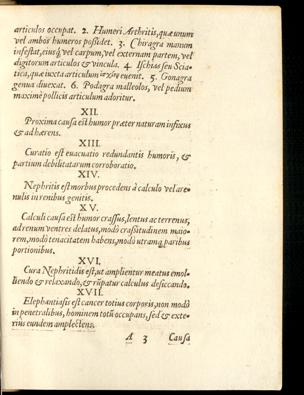 articulos occupat. 2. Humeri Arthritis, quæ unum
vel ambos humeros poſsidet. 3. Chiragra manum
infeſtat, eiusq́; vel carpum, vel externam partem, vel
digitorum articulos & vincula. 4 Iſchias ſeu Scia-
tica, quæ iuxta articulum ἰχίον euenit. 5. Gonagra
genua diuexat. 6. Podagra malleolos, vel pedium
maximè pollicis articulum adoritur.
XII.
Proxima cauſa eſt humor præter naturam infixus
& adhærens.
XIII.
Curatio est euacuatio redundantis humoris, &
partium debilitatarum corroboratio.
XIV.
Nephritis est morbus procedens à calculo vel are-
nulis in renibus genitis.
XV.
Calculi cauſa est humor craſſus, lentus ac terrenus,
ad renum ventres delatus, modò craſsitudinem maio-
rem, modò tenacitatem habens, modò utramq; paribus
portionibus.
XVI.
Cura Nephritidis est, ut amplientur meatus emol-
liendo & relaxando, & rũpatur calculus deſiccando.
XVII.
Elephantiaſis est cancer totius corporis, non modò
in penetralibus, hominem totũ occupans, ſed & exte-
rius eundem amplectens.
A 3 Cauſa